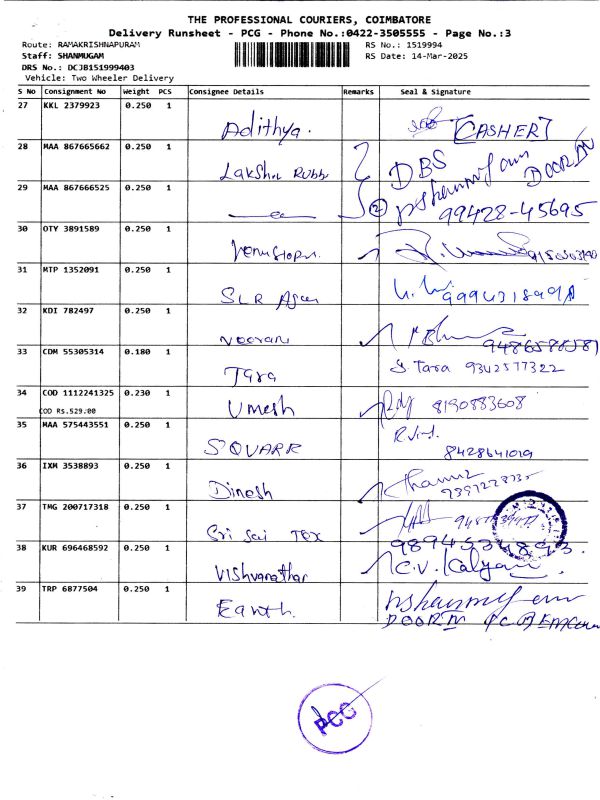 THE PROFESSIONAL COURIERS, COIMBATORE
Delivery Runsheet - PCG - Phone No.:0422-3505555 - Page No.:3
Route: RAMAKRISHNAPURAM RS No.: 1519994
Staff: SHANMUGAM RS Date: 14-Mar-2025
DRS No.: DCJB151999403
Vehicle: Two Wheeler Delivery
S No Consignment No Weight PCS Consignee Details Remarks Seal & Signature
27 KKL 2379923 0.250 1
Adithya. [CASHER]
28 MAA 867665662 0.250 1
Lakshmi Rubb DBS DOOR IN
29 MAA 867666525 0.250 1
2 99428-45695
30 OTY 3891589 0.250 1
31 MTP 1352091 0.250 1
SLR
32 KDI 782497 0.250 1
33 CDM 55305314 0.180 1
Tara S. Tara 9342577322
34 COD 1112241325 0.230 1
COD RS.529.00 Umesh 8190883608
35 MAA 575443551 0.250 1
SQUARE 8428641019
36 IXM 3538893 0.250 1
Dinesh
37 TMG 200717318 0.250 1
Sri Sai Tex
38 KUR 696468592 0.250 1 9894534893
Vishvanathar C.V. Kalyani
39 TRP 6877504 0.250 1
Earth DOOR IN
PCG